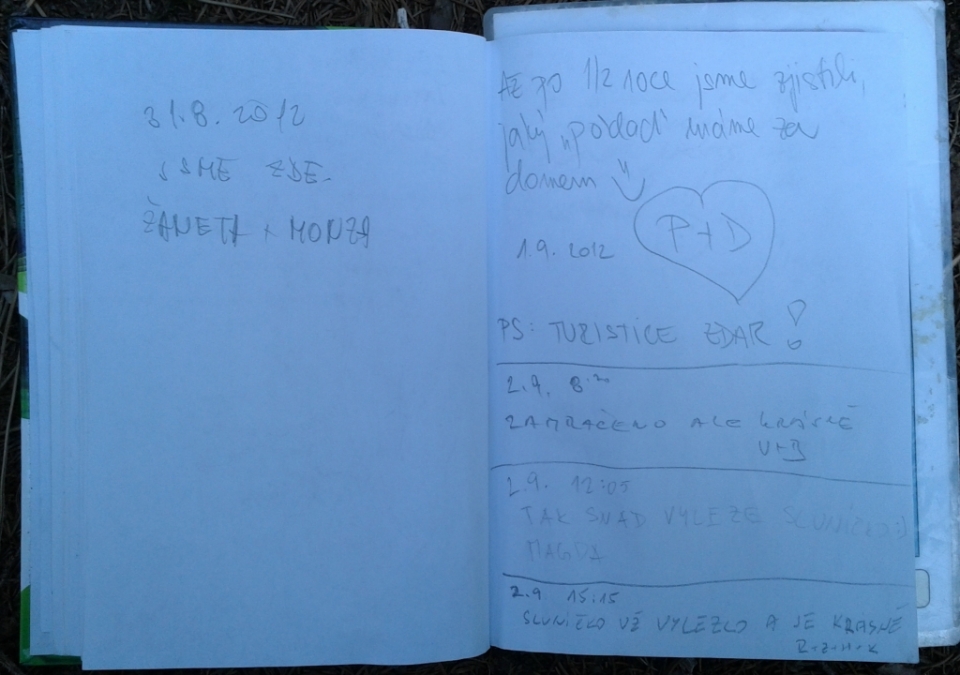 31.8.2012
JSME ZDE
ŽANETA + HONZA
AŽ PO 1/2 roce jsme zjistili,
jaký "poklad" máme za
domem
P+D
1.9.2012
PS: TURISTICE ZDAR!
2.9. 8:20
ZAMRAČENO ALE KRÁSNĚ
V+B
2.9. 12:05
TAK SNAD VYLEZE SLUNÍČKO :)
MAGDA
2.9 15:15
SLUNÍČKO UŽ VYLEZLO A JE KRÁSNĚ